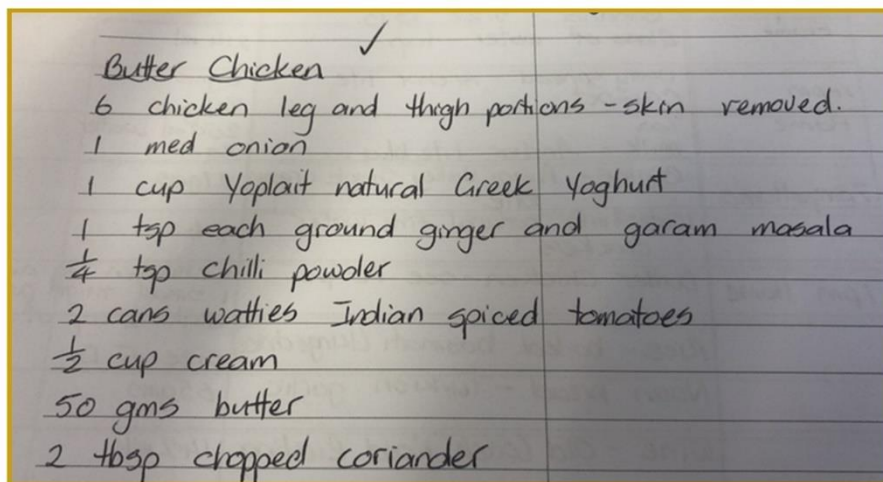 Butter Chicken
6 chicken leg and thigh portions - skin removed.
1 med onion
1 cup Yoplait natural Greek Yoghurt
1 tsp each ground ginger and garam masala
1/4 tsp chilli powder
2 cans watties Indian spiced tomatoes
1/2 cup cream
50 gms butter
2 tbsp chopped coriander